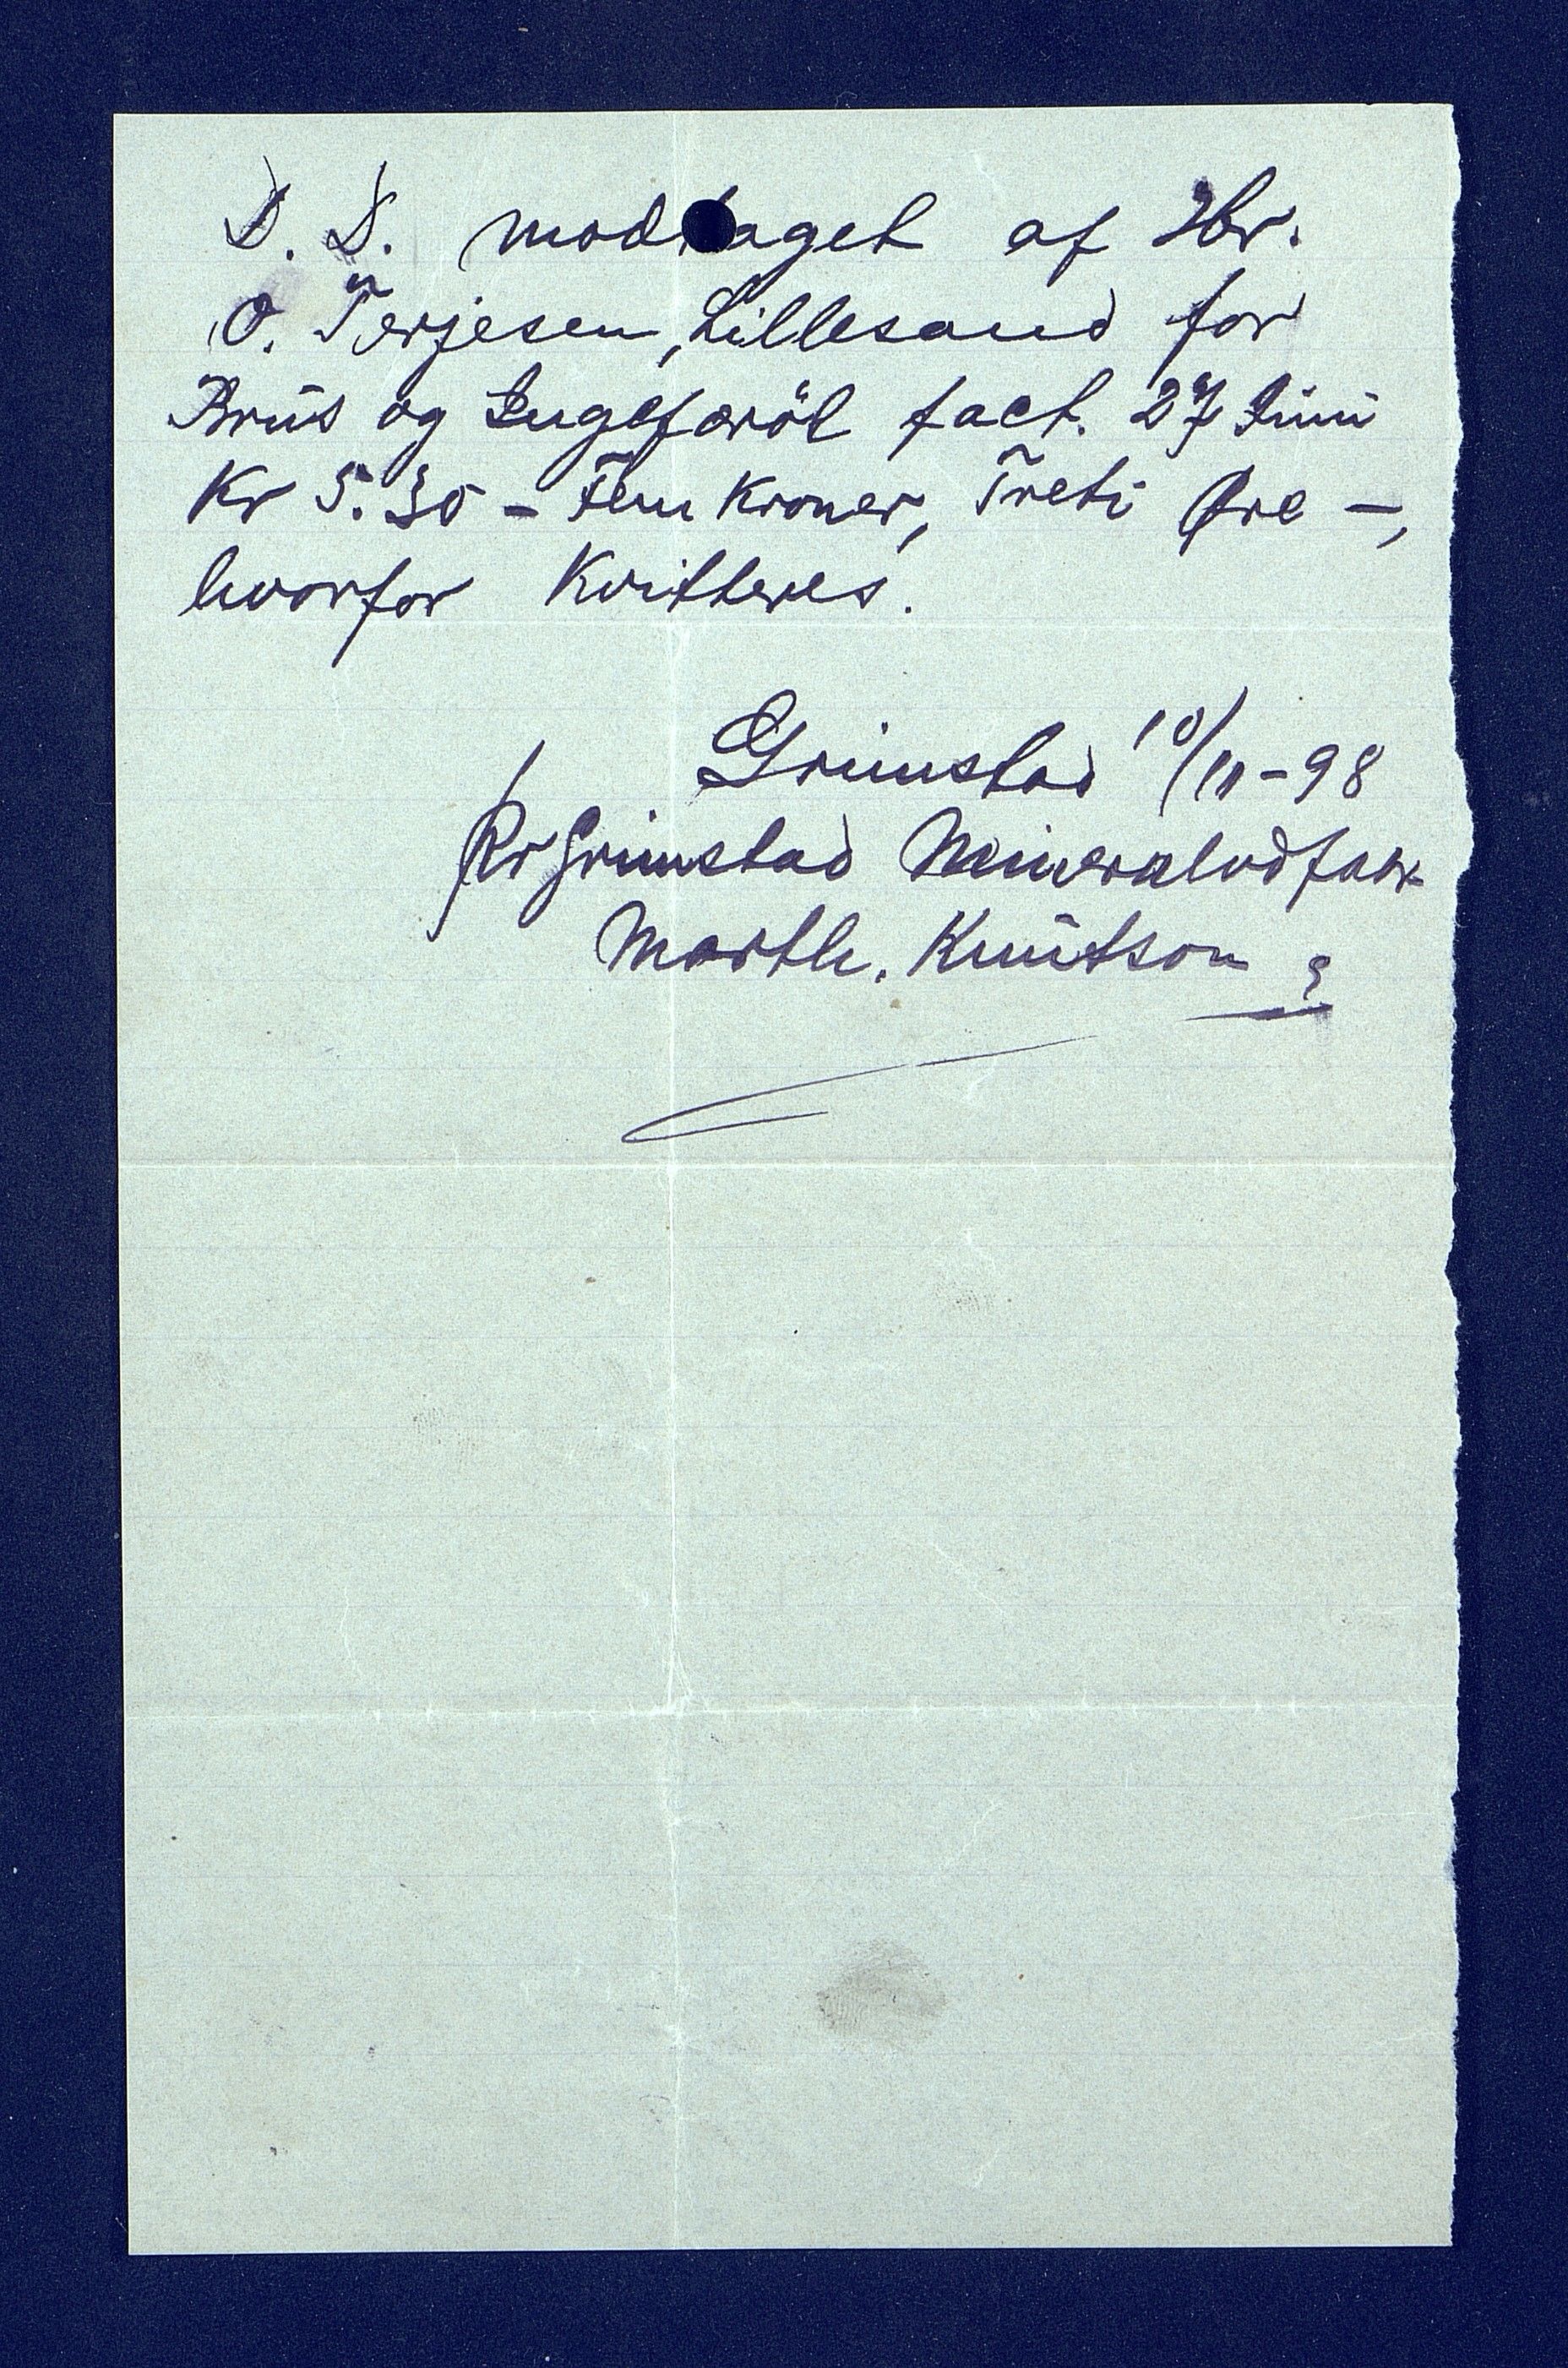 D. D. modtaget af Hr.
O. Terjesen, Lillesand for
Brus og Ingeføröl fact. 27 Juni
Kr 5.30 – Fem Kroner, Treti Øre –,
hvorfor Kvitteres.
Grimstad 10/11-98
Pr Grimstad Mineralvdfabr
Marth. Knutson